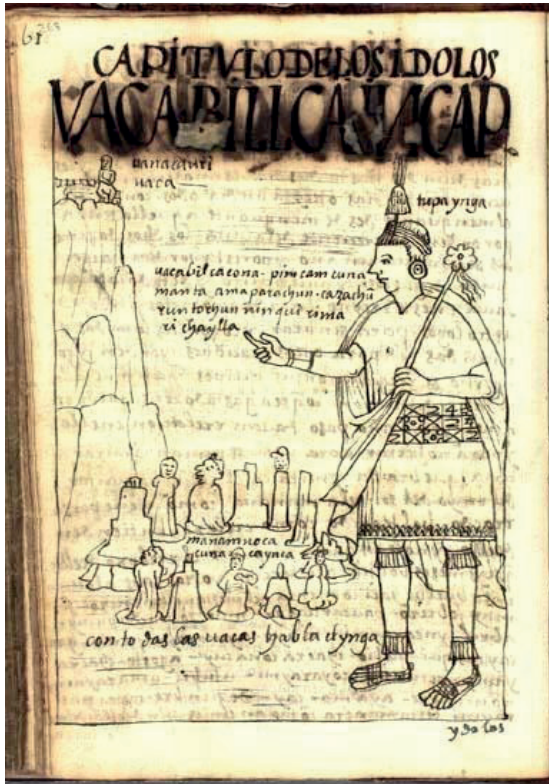 CAPITVLODELOSIDOLOS
VACABILLCAIИCAP
uanacauri
uaca
tupa ynga
uacabilcacona - pim cam cuna
manta ama parachun - cazachū
runtochun ninqui rima
ri chaylla
manam noca
cuna caynca
con todas las uacas habla el ynga
ydolos